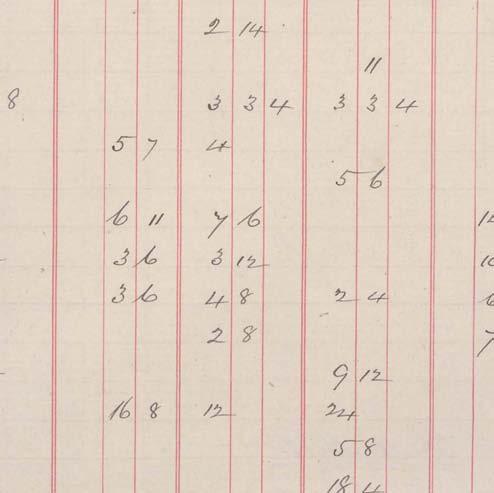 2 14
11
8 3 3 4 3 3 4
5 7 4
5 6
6 11 7 6
3 6 3 12
3 6 4 8 2 4
2 8
9 12
16 8 12 24
5 8
18 4